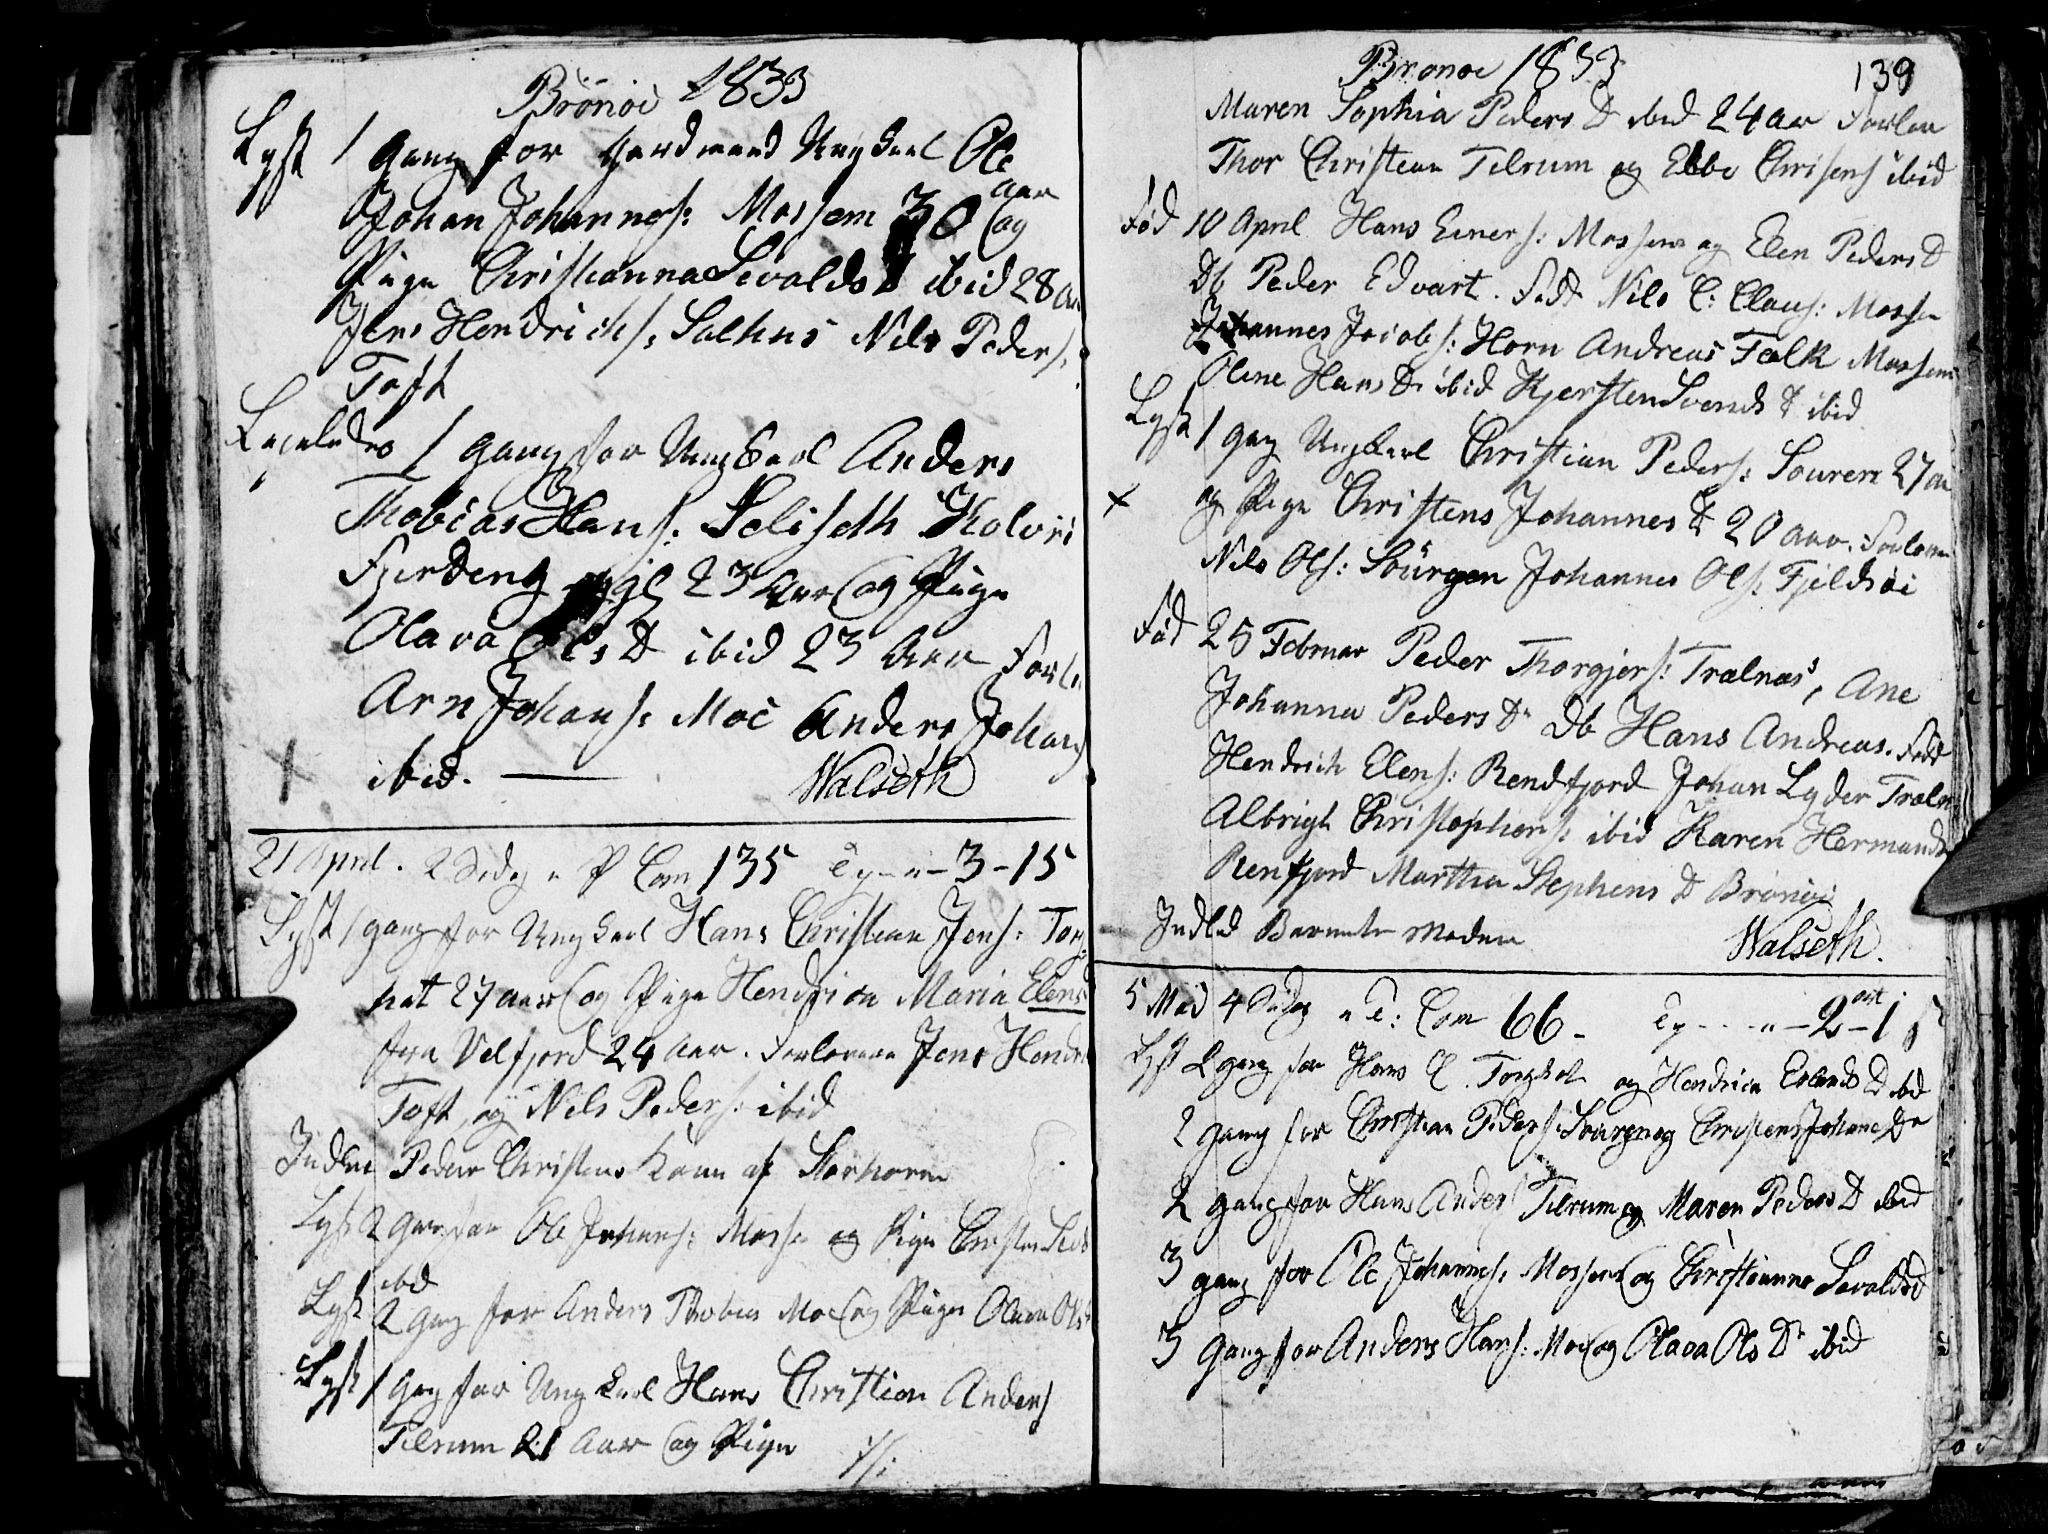 Brönöe 1833
Lyst 1 gang for Gaardmand Ungkarl Ole
Johan Johannes: Mossem 30 Aar og
Pige Christianna Sevalds D ibid 28 Aar
Jens Hendrichs: Salhus Nils Peders:
Toft
Ligeledes 1 gang for Ungkarl Anders
Thobias Hans: Selseth
Fjerdeng 23 Aar og Pige
Olava Ols D ibid 23 Aar Forl
Arn Johans: Moe Anders Johans
ibid. Walseth
21 April. 2 Com 135 3-15
Lyst 1 gang for Ungkarl Hans Christian Jens: Torg
hat 27 aar og Pige Hendrica Maria Elens
fra Velfjord 24 Aar. Forlovere Jens Hendr
Toft, og Nils Peders: ibid
Indled Peder Christens Kone af Storhorn
Lyst 2 gang for Ole Johans: Mosse og Pige
ibd
Lyst 2 gang for Anders Thobias Moe og Pige Olava Ols
Lyst 1 gang for Ungkarl Hans Christian Anders
Tilrum 21 Aar og Pige
Brönöe 1833 139
Maren Sophia Peders D ibid 24 aar Forlov
Thor Christian Tilrum og Ebbe Chrisens ibid
Fød 10 April Hans Einers: Mossem og Elen Peders D
Db Peder Edvart. Fadd Nils C: Claus: Mosse
Johannes Jacobs: Horn Andreas Falk Mossem
Oline Hans D ibid Kjersten Svends D ibid
Lyst 1 gang Ungkarl Christian Peders: Souren 27 aar
og Pige Christens Johannes D 20 aar. Forlover
Nils Ols: Sourgen Johannes Ols: Fjeldsøi
Fød 25 Februar Peder Thorgjers: Trælnæs, Ane
Johanna Peders D Db Hans Andreas. Fadd
Hendrich Elens: Rendfjord Johan Lyder Træln
Albrigt Christophers: ibid Karen Hermands
Renfjord Martha Stephens D Brönöe
Indled Barnets Moder
Walseth.
5 Mai 4 Com 66 - 2 ort 1
Lyst 2 gang for Hans C. Torghat og Hendrica D ibd
2 gang for Christian Peders: Sourgen og Christens Johane D
2 gang for Hans Anders Tilrum og Maren Peders D ibid
3 gang for Ole Johannes: Mossem og Christianna Sevalds D
3 Gang for Anders Hans: Moe og Olava Ols D ibid